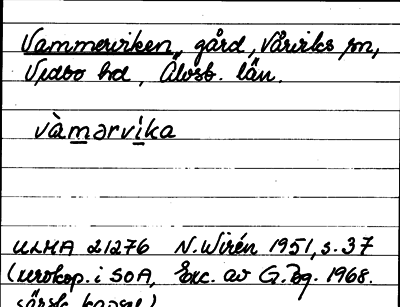 Vammerviken, gård, Vårviks sn,
Vedbo hd, Älvsb. län.
vàmərvíka
ULMA 21276 N. Wirén 1951, s. 37
(xerokop. i SOA, Exc. av G. Bg. 1968.
särsk. kapsel)